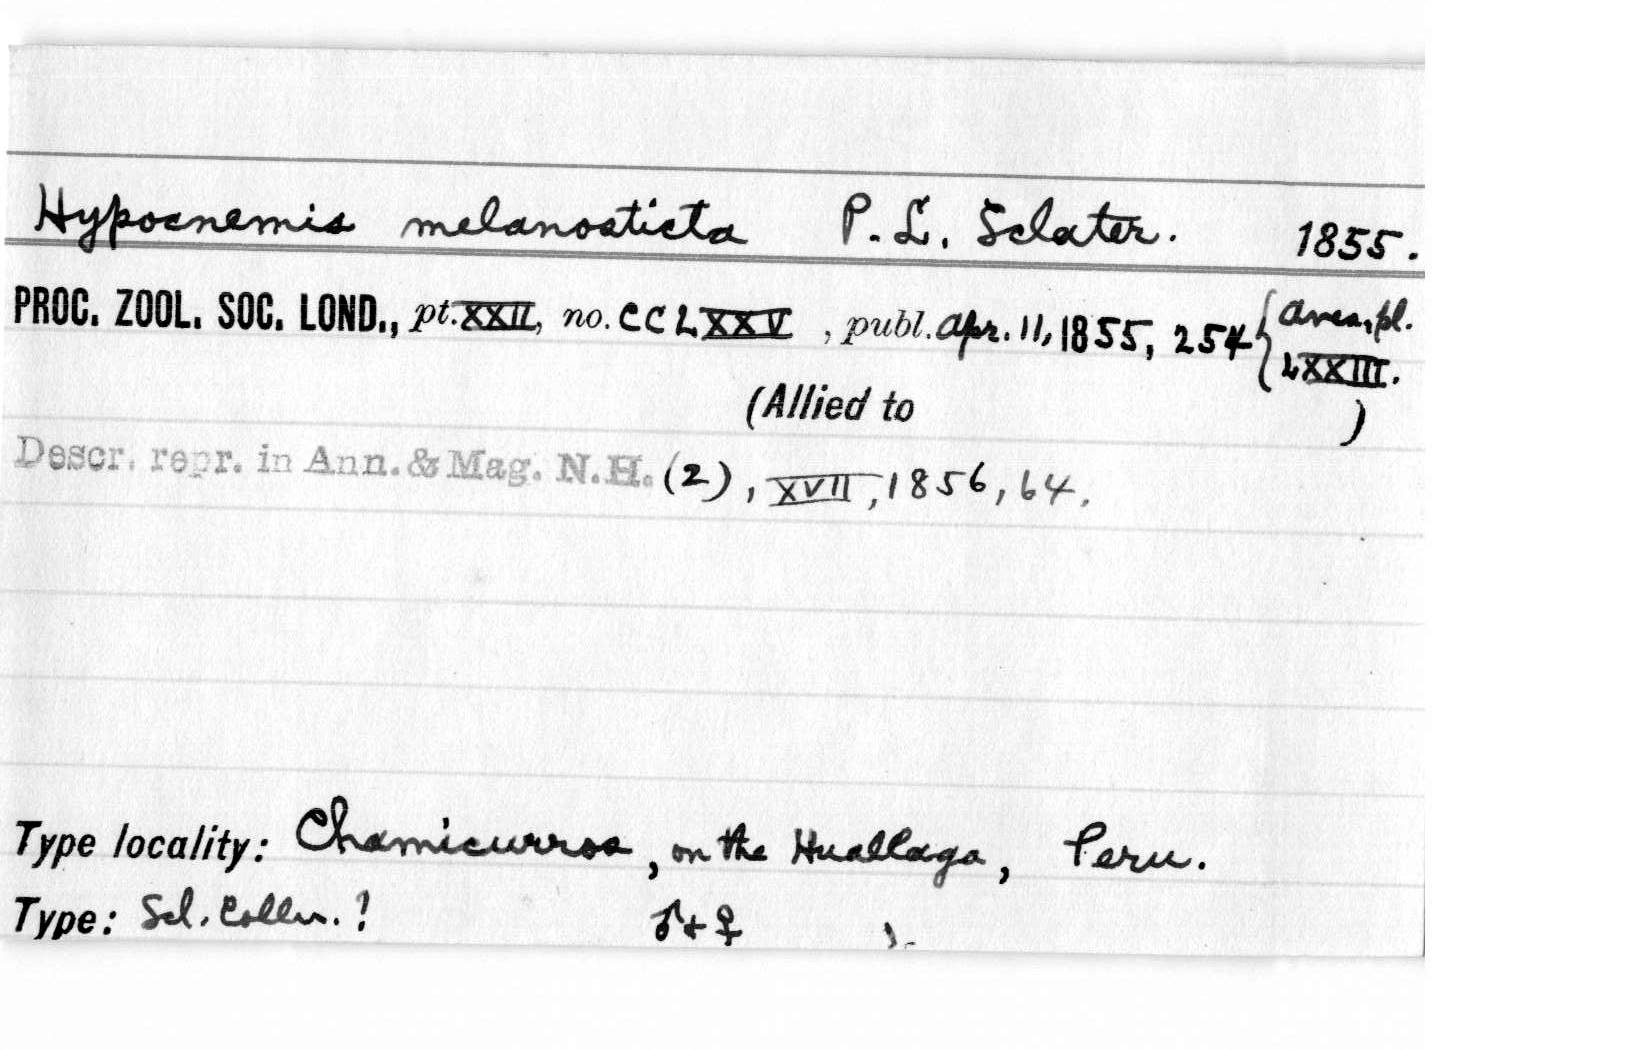 Hypocnemis melanosticta P. L. Sclater. 1855.
PROC. ZOOL. SOC. LOND., pt. XXII, no. CCLXXV , publ. Apr. 11, 1855, 254 { Aves, pl. LXXIII.
(Allied to )
Descr. repr. in Ann. & Mag. N.H. (2), XVII, 1856, 64.
Type locality: Chamicurros, on the Huallaga, Peru.
Type: Scl. Colln. ? ♂ + ♀